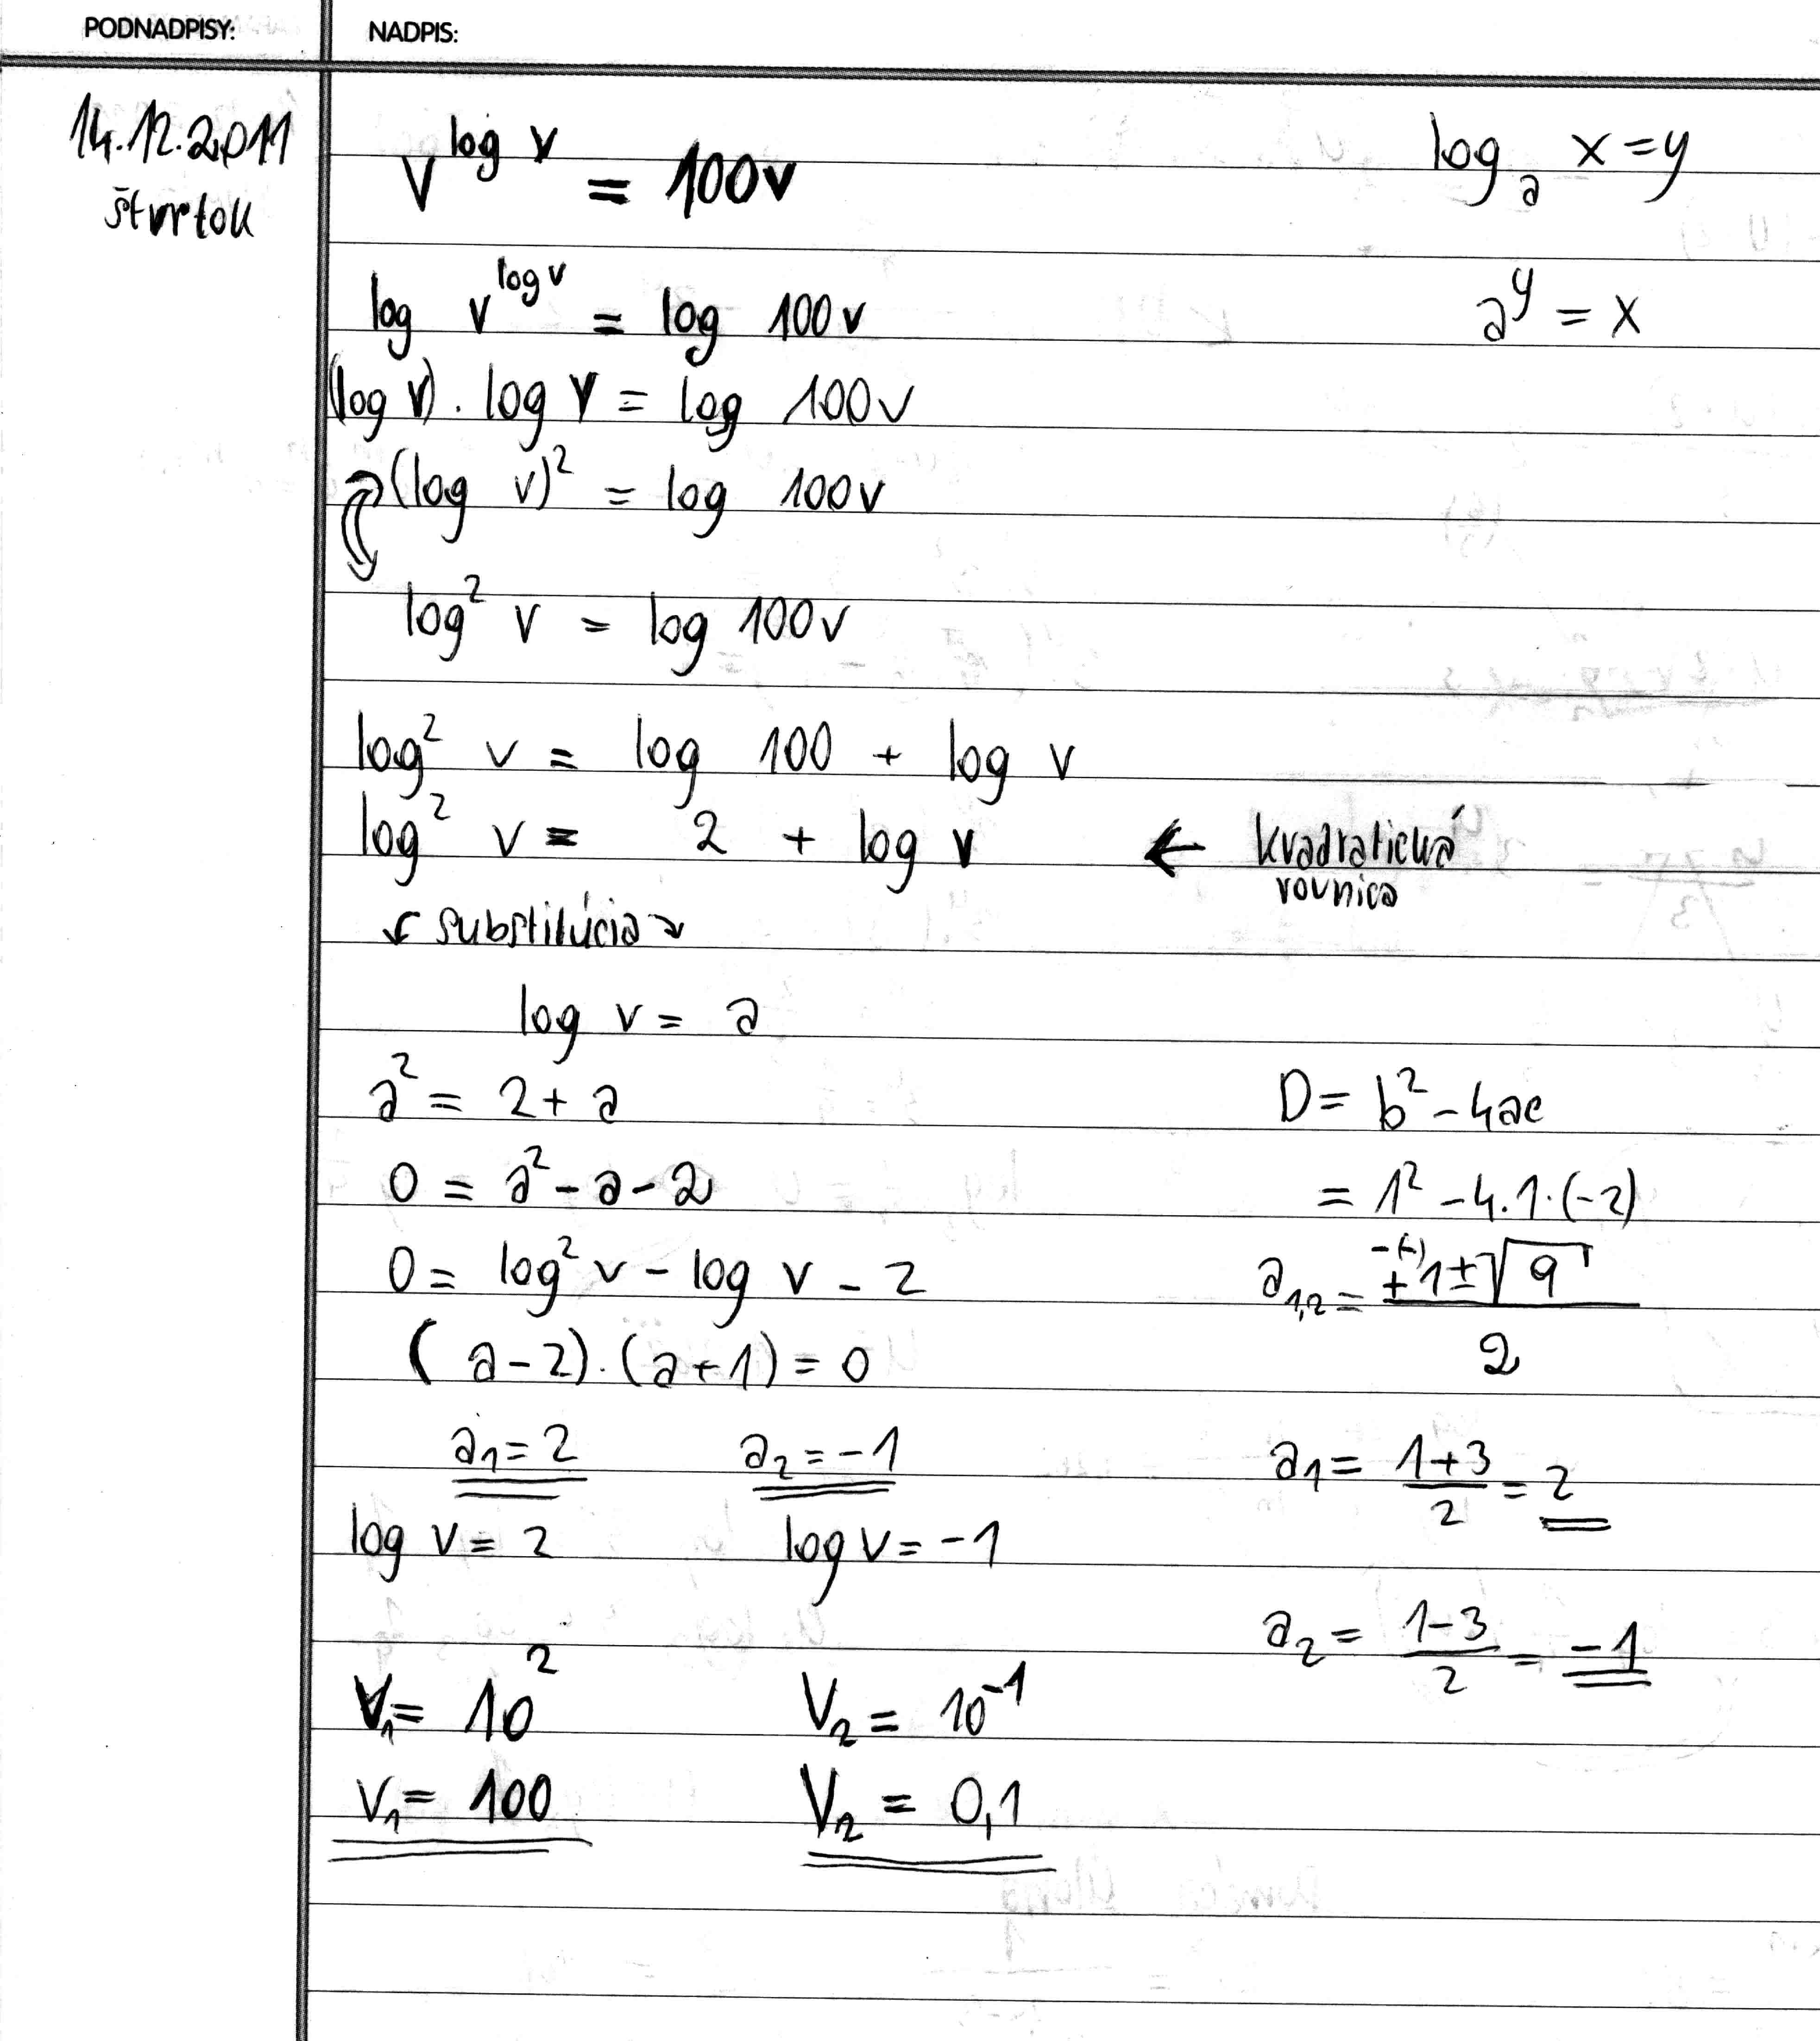 PODNADPISY: NADPIS:
14.12.2011
štvrtok
v^(log v) = 100v
log_a x = y
log v^(log v) = log 100v
a^y = x
(log v) . log v = log 100v
(log v)² = log 100v
log² v = log 100v
log² v = log 100 + log v
log² v = 2 + log v ← kvadratická
rovnica
↙ substitúcia ↘
log v = a
a² = 2 + a
D = b² - 4ac
0 = a² - a - 2
= 1² - 4.1.(-2)
0 = log² v - log v - 2
a₁,₂ = (-(-) +1 ± √9) / 2
(a - 2) . (a + 1) = 0
a₁ = 2 a₂ = -1
a₁ = (1+3)/2 = 2
log v = 2 log v = -1
a₂ = (1-3)/2 = -1
v₁ = 10² V₂ = 10⁻¹
v₁ = 100 V₂ = 0,1